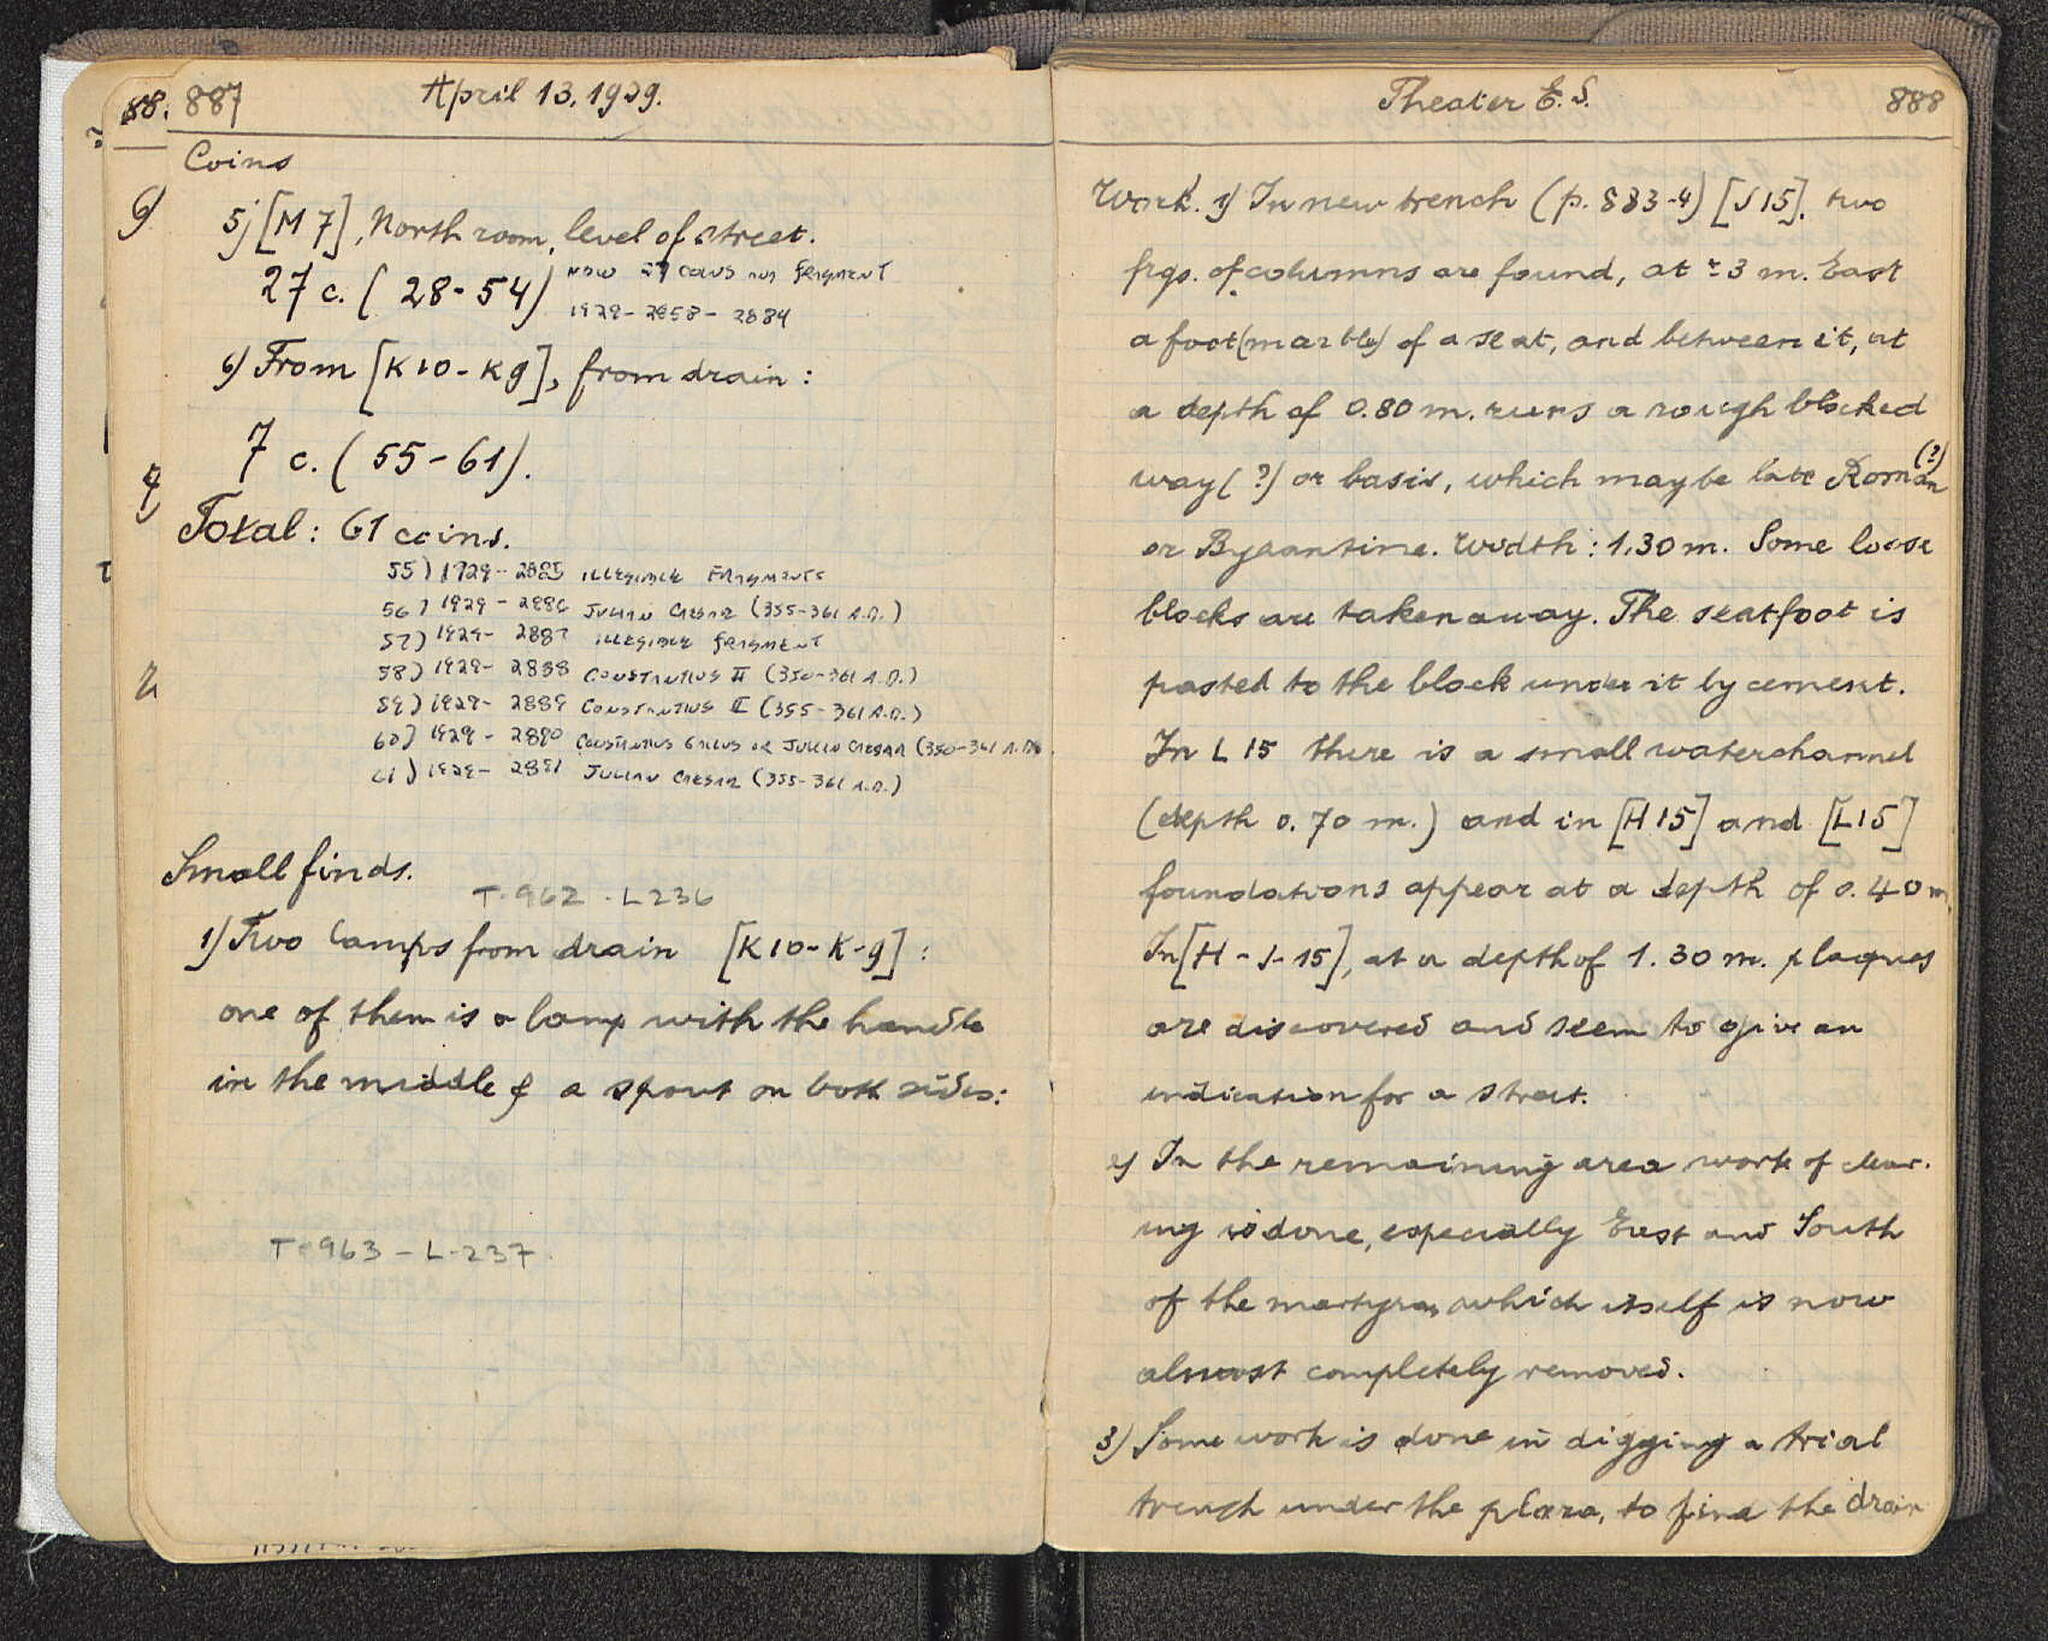 88. 887 April 13, 1929.
Coins
5) [M 7], North room, level of street.
27 c. (28-54) now 27 coins and fragment
1929-2858-2884
6) From [K10-K9], from drain:
7 c. (55-61).
Total: 61 coins.
55) 1929-2885 illegible fragments
56) 1929-2886 Julian Caesar (355-361 A.D.)
57) 1929-2887 illegible fragment
58) 1929-2888 Constantius II (350-361 A.D.)
59) 1929-2889 Constantius II (355-361 A.D.)
60) 1929-2890 Constantius Gallus or Julian Caesar (350-361 A.D.)
61) 1929-2891 Julian Caesar (355-361 A.D.)
Small finds.
T-962-L236
1) Two lamps from drain [K10-K-9]:
one of them is a lamp with the handle
in the middle & a spout on both sides:
T-963-L-237
Theater E.S. 888
Work. 1) In new trench (p. 883-4) [J15], two
frgs. of columns are found, at ± 3 m. East
a foot (marble) of a seat, and between it, at
a depth of 0.80 m. runs a rough blocked
way (?) or basis, which may be late Roman (?)
or Byzantine. Width: 1.30 m. Some loose
blocks are taken away. The seatfoot is
pasted to the block under it by cement.
In L 15 there is a small waterchannel
(depth 0.70 m.) and in [H15] and [L15]
foundations appear at a depth of 0.40 m.
In [H-J-15], at a depth of 1.30 m. plaques
are discovered and seem to give an
indication for a street.
2) In the remaining area work of clear-
ing is done, especially East and South
of the martyrion, which itself is now
almost completely removed.
3) Some work is done in digging a trial
trench under the plaza, to find the drain